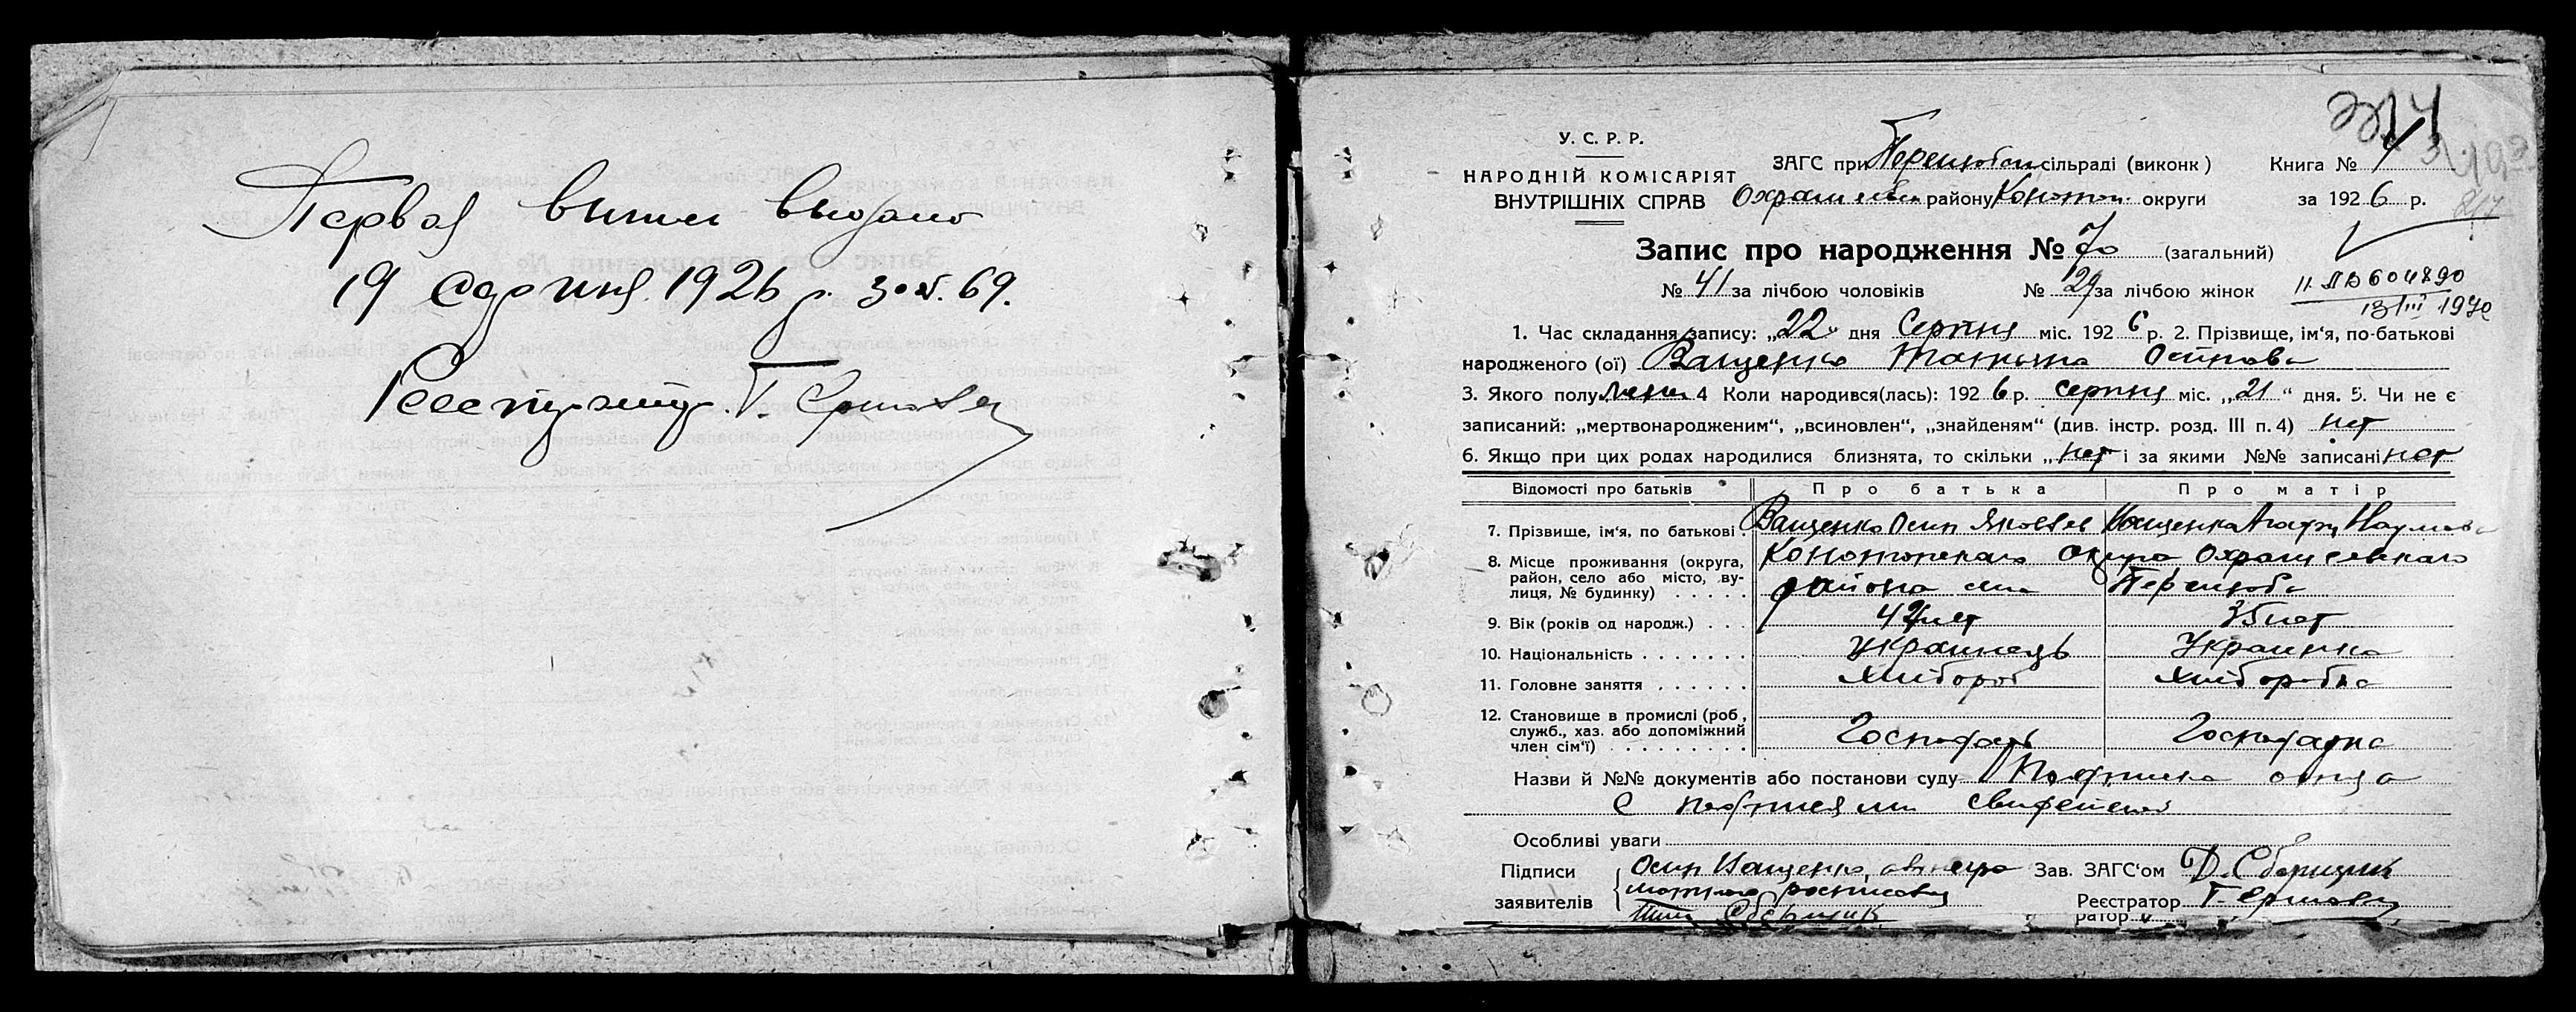 Первая выпись выдано
19 серпня 1926 р. за № 69.
Реестратор Т.
У. С. Р. Р.
НАРОДНІЙ КОМІСАРІЯТ
ВНУТРІШНІХ СПРАВ
ЗАГС при сільраді (виконк)
району Конотоп. округи
Книга № 4
за 1926 р.
Запис про народження № 70 (загальний)
№ 41 за лічбою чоловіків № 29 за лічбою жінок
1970
1. Час складання запису: „22" дня Серпня міс. 1926 р. 2. Прізвище, ім'я, по-батькові
народженого (ої) Ващенко Татьяна Осипова
3. Якого полу жен 4 Коли народився(лась): 1926 р. серпня міс. „21" дня. 5. Чи не є
записаний: „мертвонародженим", „всиновлен", „знайденям" (див. інстр. розд. III п. 4) нет
6. Якщо при цих родах народилися близнята, то скільки „нет" і за якими №№ записані нет
Відомості про батьків Про батька Про матір
7. Прізвище, ім'я, по батькові. Ващенко Осип Яковлев Ващенка Агафия Наумова
8. Місце проживання (округа, район, село або місто, вулиця, № будинку) Конотопскаго округа района
9. Вік (років од народж.) 42 лет 35 лет
10. Національність Украинець Украинка
11. Головне заняття Хлібороб Хліборобка
12. Становище в промислі (роб, служб., хаз. або допоміжний член сім'ї) Господарь Господарка
Назви й №№ документів або постанови суду Подписка отца
с подписями свидетелей
Особливі уваги
Підписи заявителів Осип Ващенко, а за него
неграмотного росписався
Зав. ЗАГС'ом Д.
Реєстратор Т.
ратор